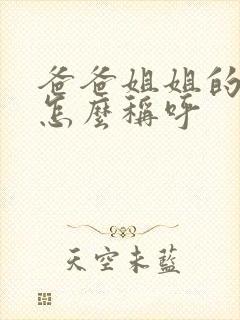 爸爸姐姐的
怎麼稱呼
天空未藍